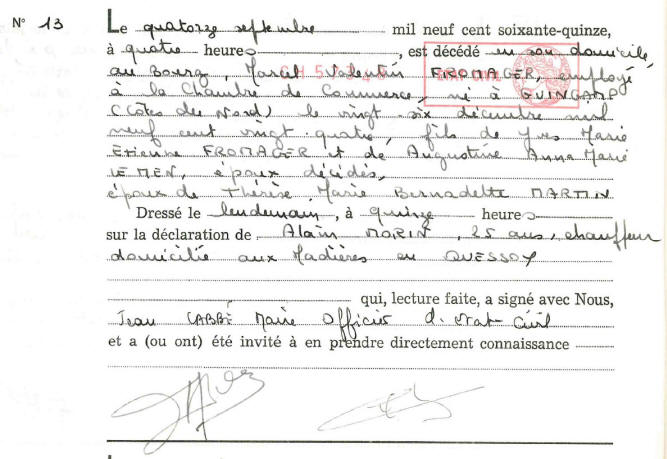 N° 13
Le quatorze septembre mil neuf cent soixante-quinze,
à quatre heures, est décédé en son domicile,
au Bourg, Marcel Valentin FROMAGER, employé
à la Chambre de Commerce, né à GUINGAMP
(Côtes du Nord) le vingt six décembre mil
neuf cent vingt quatre, fils de Yves Marie
Etienne FROMAGER et de Augustine Anna Marie
LE MEN, époux décédés,
époux de Thérèse Marie Bernadette MARTIN
Dressé le lendemain, à quinze heures
sur la déclaration de Alain MORIN, 25 ans, chauffeur
domicilié aux Madières en QUESSOY
qui, lecture faite, a signé avec Nous,
Jean LABBÉ Maire Officier d'Etat Civil
et a (ou ont) été invité à en prendre directement connaissance